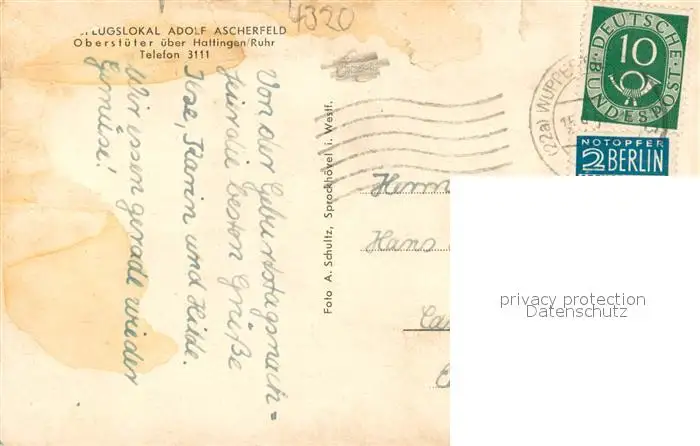 4320
FLUGSLOKAL ADOLF ASCHERFELD
Oberstüter über Hattingen/Ruhr
Telefon 3111
Von der Geburtstagsnach=
feier die besten Grüße
Ilse, Karin und Hilde.
Wir essen gerade wieder
Gemüse!
Foto A. Schultz, Sprockhövel i. Westf.
(22a) WUPPER
DEUTSCHE BUNDESPOST
10
NOTOPFER
2 BERLIN
Herrn
Hans
privacy protection
Datenschutz